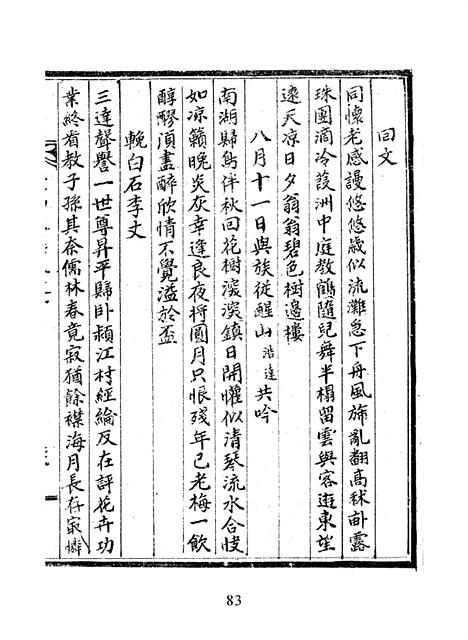 回文
同懷老感謾悠悠歲似流灘急下舟風旆亂翻高秫畝露
珠團滴冷葭洲中庭教鶴隨兒舞半榻留雲與客遊東望
遠天凉日夕翁翁碧色樹邊樓
八月十一日與族從醒山浩達共吟
南湖歸鳥伴秋回花樹溪演鎮日開懽似清琴流水合恨
如凉籟晩炎灰幸逢良夜將圓月只恨殘年已老梅一飮
醇醪須盡醉欣情不覺溢於盃
輓白石李丈
三達聲譽一世尊昇平歸卧頻江村經綸反在評花卉功
業終看教子孫其奈儒林春竟寂猶餘襟海月長存寂憐
83